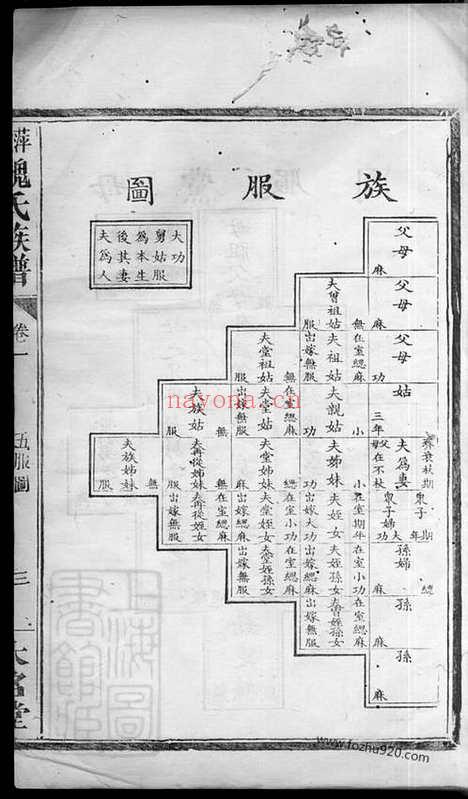 族服圖
夫為人
後其妻
為本生
舅姑服
大功
父母
麻
父母
麻
父母
功
姑
三年
夫為妻
齊衰杖期
父母在不杖
眾子
期年
眾子婦
大功
孫婦
緦麻
孫
麻
孫
麻
夫曾祖姑
在室緦麻
出嫁無服
夫祖姑
在室緦麻
出嫁無服
夫親姑
小功
夫姊妹
小功
夫姪女
在室期年
出嫁大功
夫姪孫女
在室小功
出嫁緦麻
夫曾姪孫女
在室緦麻
出嫁無服
夫堂祖姑
在室緦麻
出嫁無服
夫堂姑
在室緦麻
出嫁無服
夫堂姊妹
緦麻
夫堂姪女
在室小功
出嫁緦麻
夫堂姪孫女
在室緦麻
出嫁無服
夫族姑
無服
夫再從姊妹
無服
夫再從姪女
在室緦麻
出嫁無服
夫族姊妹
無服
萍魏氏族譜
卷一
五服圖
三
大名堂
上海圖書館藏
nayona.cn
www.fozhu920.com